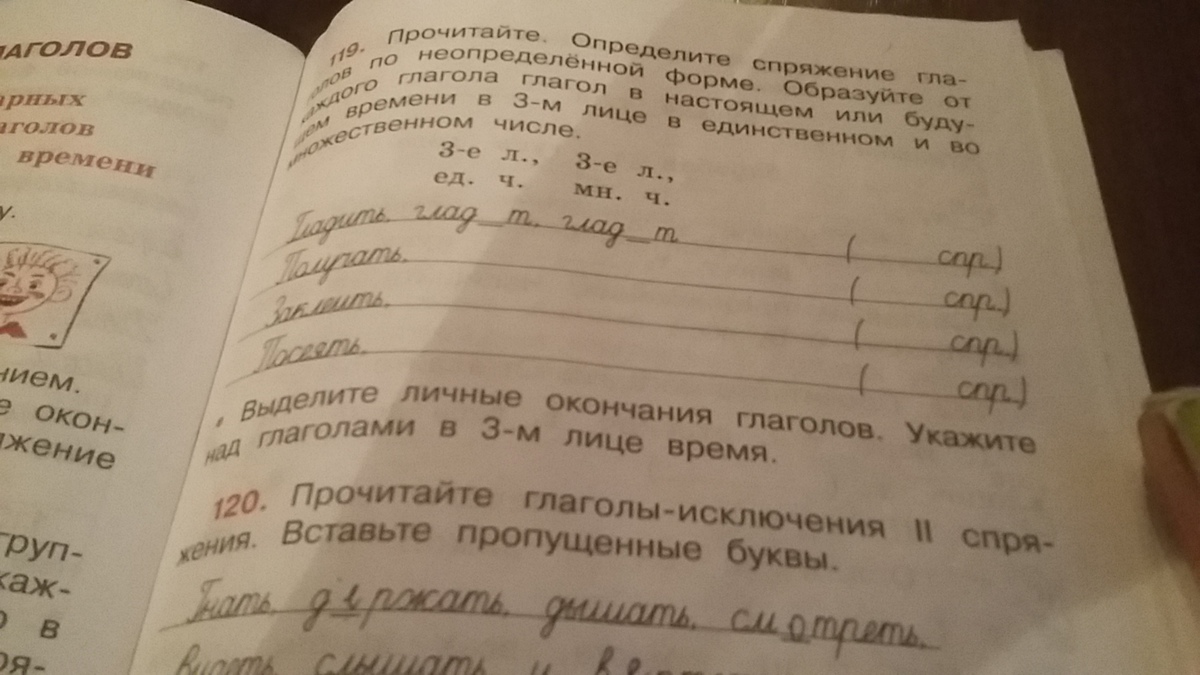 ЛАГОЛОВ
арных
аголов
времени
у.
нием.
е окон-
яжение
груп-
каж-
о в
ря-
119. Прочитайте. Определите спряжение гла-
голов по неопределённой форме. Образуйте от
каждого глагола глагол в настоящем или буду-
щем времени в 3-м лице в единственном и во
множественном числе.
3-е л., 3-е л.,
ед. ч. мн. ч.
Гладить, глад_т, глад_т ( спр.)
Получать, ( спр.)
Заклеить, ( спр.)
Посеять, ( спр.)
Выделите личные окончания глаголов. Укажите
над глаголами в 3-м лице время.
120. Прочитайте глаголы-исключения II спря-
жения. Вставьте пропущенные буквы.
Гнать, держать, дышать, смотреть,
видеть, слышать и